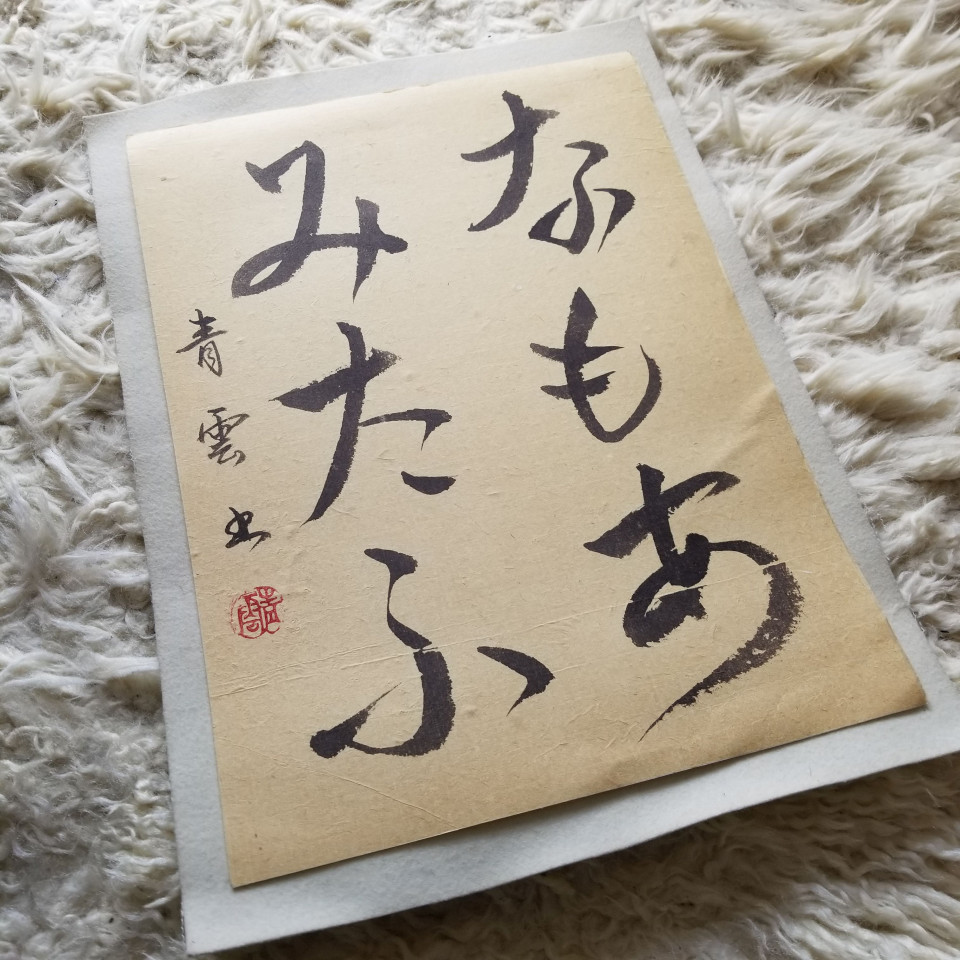 なもあ
みたふ
青雲書